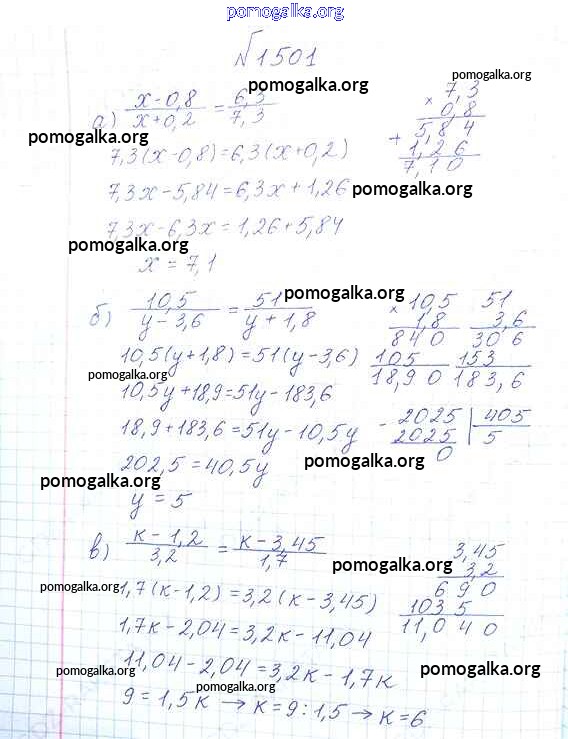 pomogalka.org
№1501
pomogalka.org
pomogalka.org
а) x-0,8 / x+0,2 = 6,3 / 7,3
7,3
× 0,8
5,84
+ 1,26
7,10
pomogalka.org
7,3(x-0,8)=6,3(x+0,2)
7,3x-5,84=6,3x+1,26
pomogalka.org
7,3x-6,3x=1,26+5,84
pomogalka.org
x=7,1
pomogalka.org
б) 10,5 / y-3,6 = 51 / y+1,8
10,5
× 1,8
840
105
18,90
51
3,6
306
153
183,6
10,5(y+1,8)=51(y-3,6)
pomogalka.org
10,5y+18,9=51y-183,6
18,9+183,6=51y-10,5y
- 2025 | 405
2025 | 5
0
202,5=40,5y
pomogalka.org
pomogalka.org
y=5
в) к-1,2 / 3,2 = к-3,45 / 1,7
3,45
3,2
690
1035
11,040
pomogalka.org
pomogalka.org
1,7(к-1,2)=3,2(к-3,45)
1,7к-2,04=3,2к-11,04
11,04-2,04=3,2к-1,7к
pomogalka.org
pomogalka.org
pomogalka.org
9=1,5к → к=9:1,5 → к=6